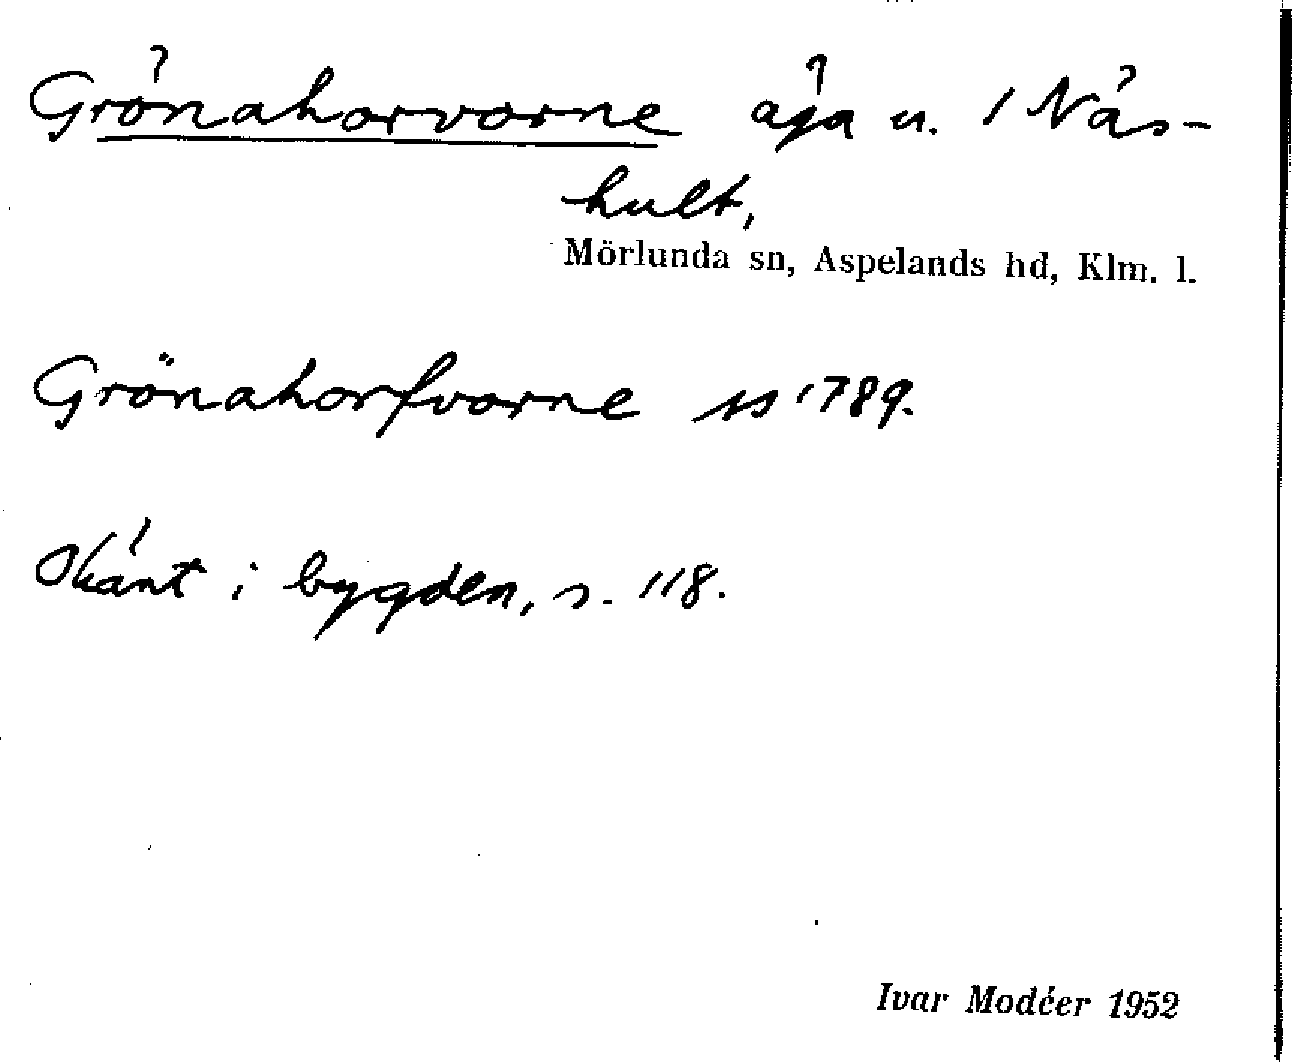 Grönahorvorne äga u. 1 Näs-
hult,
Mörlunda sn, Aspelands hd, Klm. l.
Grönahorfvorne ss 1789.
Okänt i bygden, s. 118.
Ivar Modéer 1952